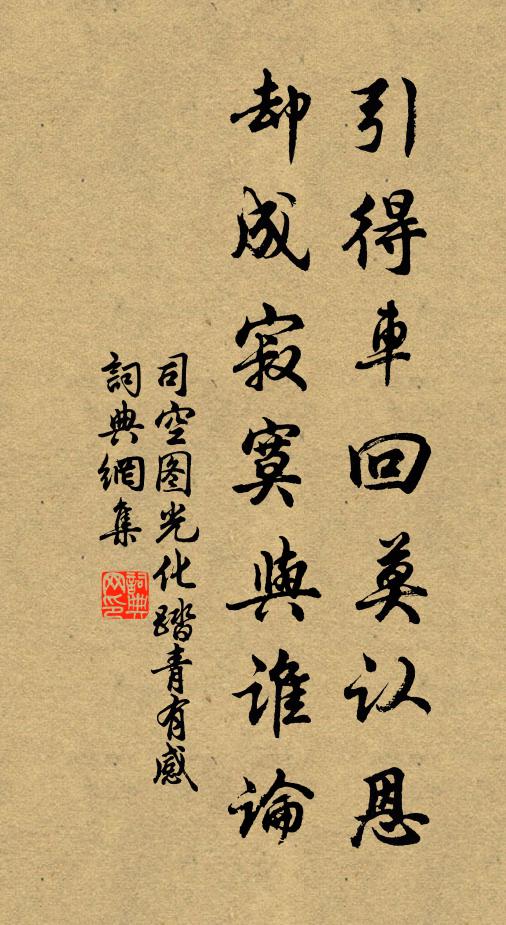 引得車回莫认恩
却成寂寞與谁論
司空图光化踏青有感
詞典網集
詞典网印